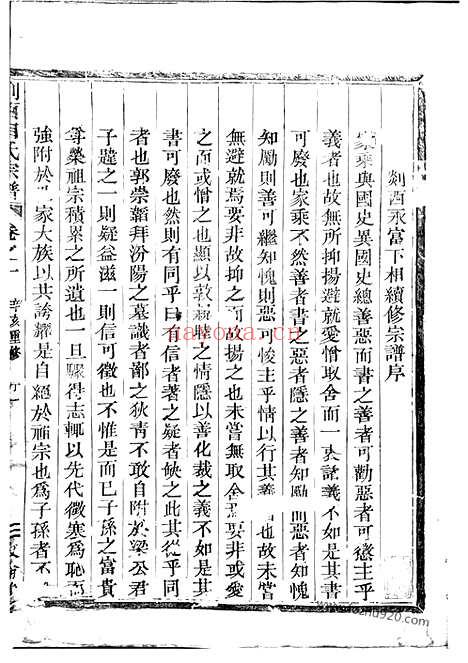 剡西永富下相續修宗譜序
家乘與國史異國史總善惡而書之善者可勸惡者可懲主乎
義者也故無所抑揚避就愛憎取舍而一夫說義不如是其書
可廢也家乘不然善者書之惡者隱之善者知勵而惡者知愧
知勵則善可繼知愧則惡 悛主乎情以行其義 也故未嘗
無避就焉要非故抑之而故揚之也未嘗無取舍焉要非或愛
之而或憎之也敦親親之情隱以善化裁之義不如是其
書可廢也然則有同乎曰不信者著之疑者缺之此其從乎同
者也郭崇韜拜汾陽之墓識者鄙之狄青不敢自附於梁公君
子韙之一則疑益滋一則信可徵也不惟是而已子孫之富貴
尊榮祖宗積累之所遺也一旦驟得志輒以先代微寒為恥而
強附於 家大族以其誇耀是自絕於祖宗也為子孫者不
剡西 氏宗譜 卷之一
navona.cn
zhu920.com